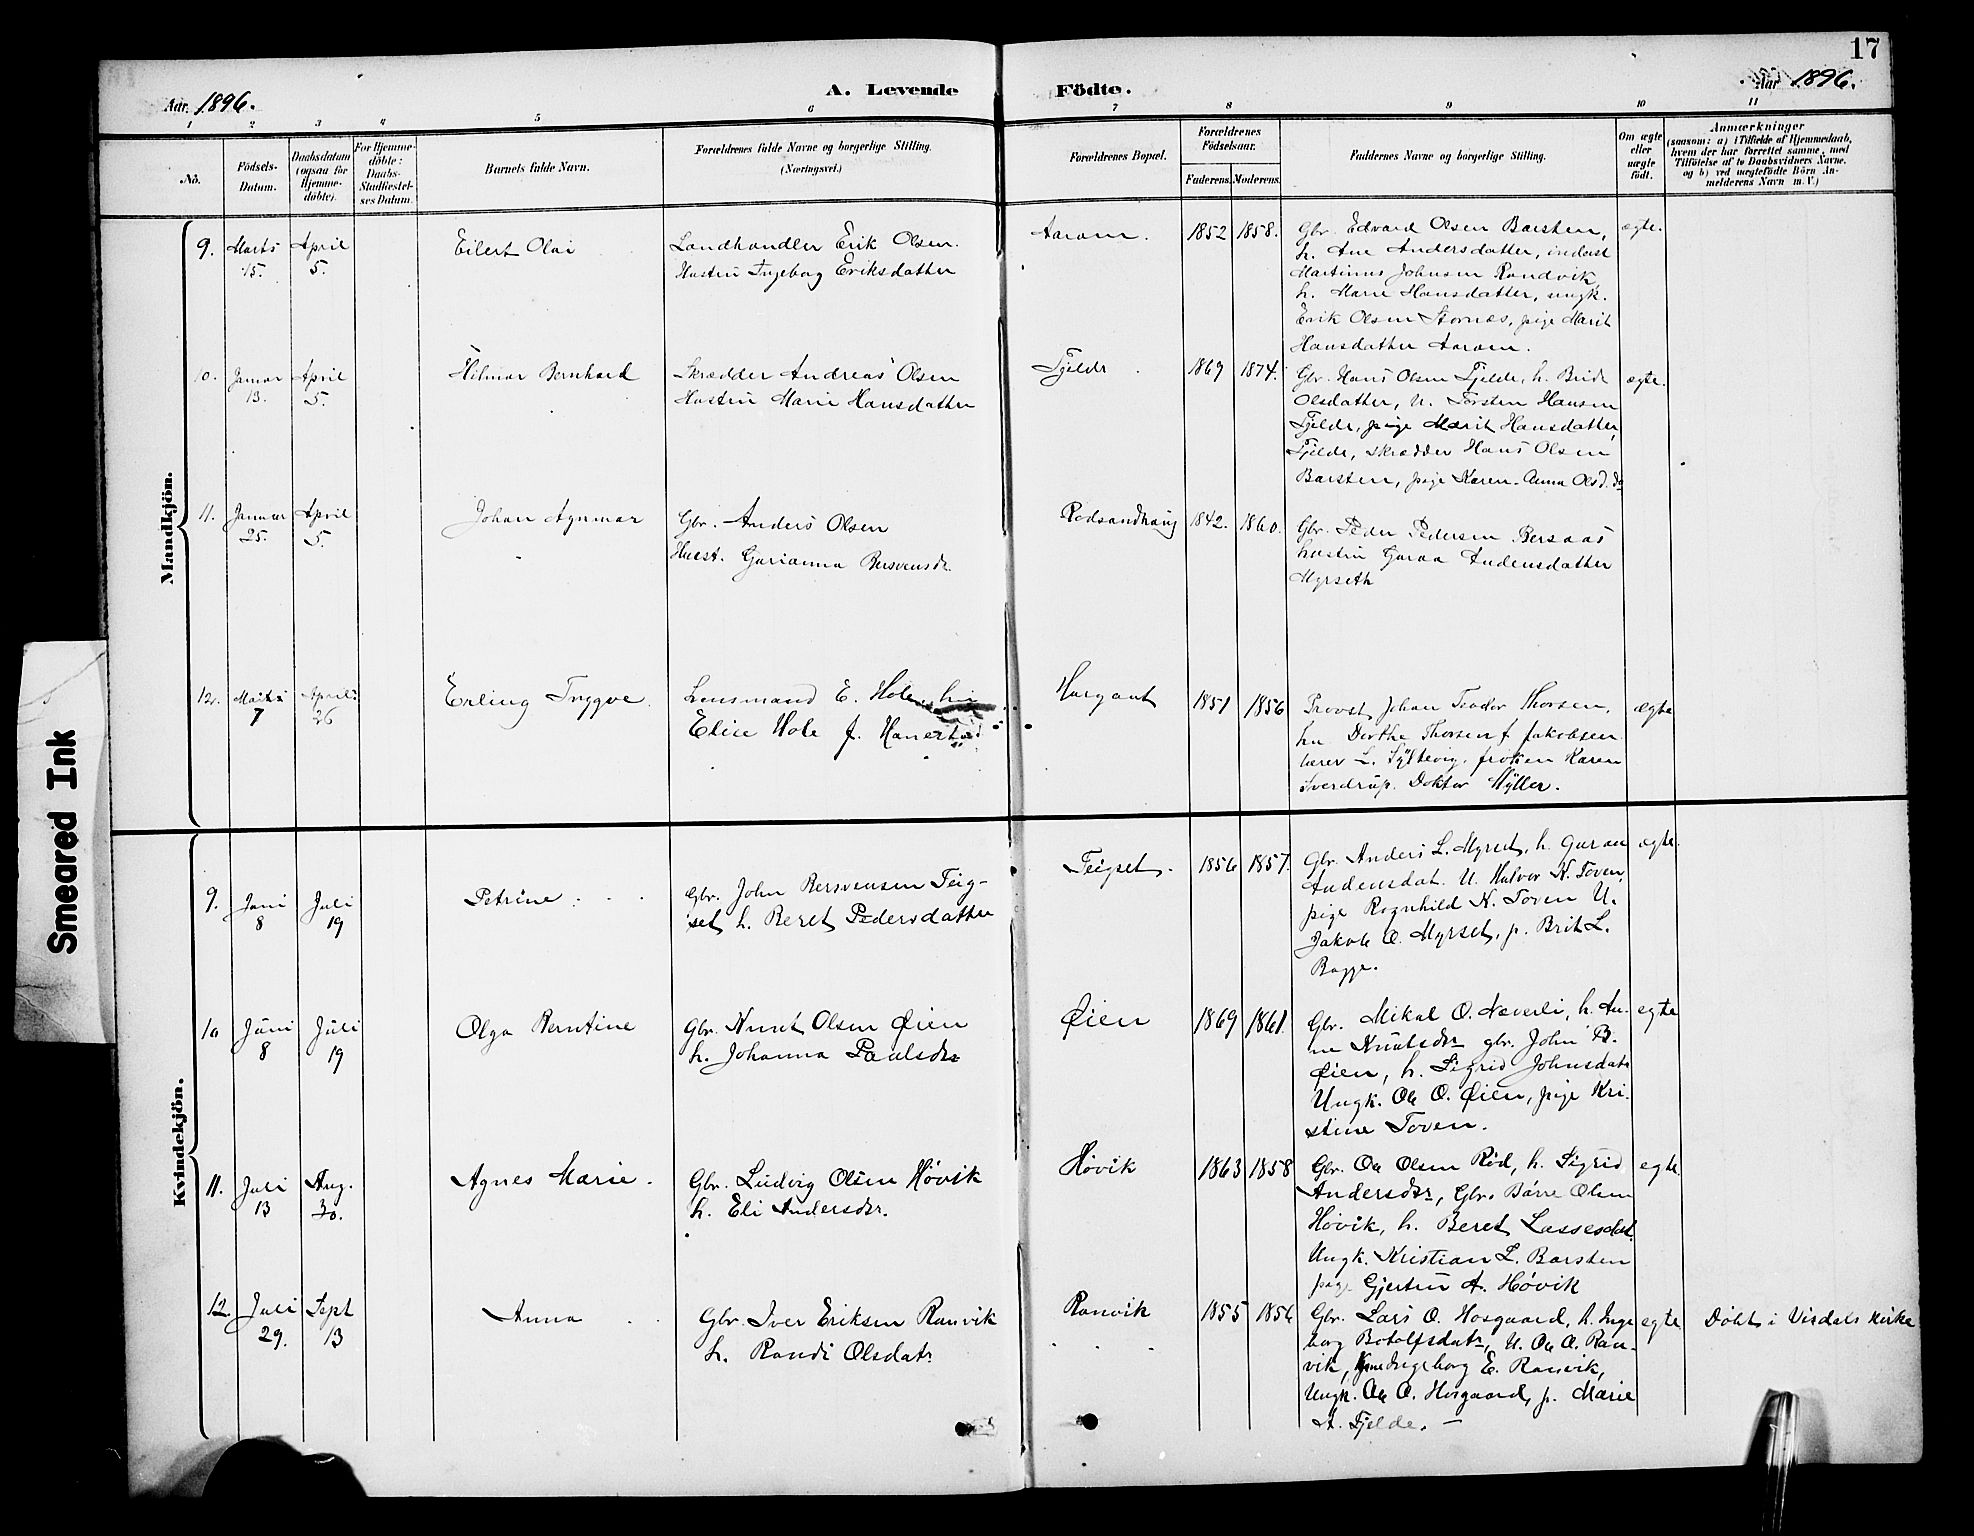 17
Aar. 1896.
A. Levende Födte.
Aar 1896.
1 2 3 4 5 6 7 8 9 10 11
No.
Födsels-
Datum.
Daabsdatum
(ogsaa for
Hjemme-
döbte).
For Hjemme-
döbte:
Daabs-
Stadfæstel-
ses Datum.
Barnets fulde Navn.
Forældrenes fulde Navne og borgerlige Stilling.
(Næringsvei.)
Forældrenes Bopæl.
Forældrenes
Födselsaar.
Faderens. Moderens.
Faddernes Navne og borgerlige Stilling.
Om ægte
eller
uægte
födt.
Anmærkninger
(saasom: a) i Tilfælde af Hjemmedaab,
hvem der har forrettet samme, med
Tilföielse af to Daabsvidners Navne,
og b) ved uægtefödte Börn An-
melderens Navn m. V.)
Mandkjön.
9. Marts
15.
April
5.
Eilert Olai
Landhandler Erik Olsen.
Hustru Ingeborg Eriksdatter
Aaram.
1852 1858.
Gbr. Edvard Olsen Barsten,
h. Ane Andersdatter, inderst
Martinus Johnsen Randvik
h. Marie Hansdatter, ungk.
Erik Olsen Stornæs, pige Marit
Hansdatter Aaram.
ægte.
10. Januar
13.
April
5.
Hilmar Bernhard
Skrædder Andreas Olsen
Hustru Marie Hansdatter
Fjelde
1869 1874.
Gbr. Hans Olsen Fjelde, h. Brit
Olsdatter, U. Torsten Hansen
Fjelde, pige Marit Hansdatter,
Fjelde, skrædder Hans Olsen
Barsten, pige Karen-Anna Olsd. do
ægte.
11. Januar
25.
April
5.
Johan Agnmar
Gbr. Anders Olsen
Hust. Gurianna Bersvensdr.
Rødsandhaug
1842. 1860.
Gbr. Peder Pedersen Bersaas
hustru Guraa Andensdatter
Myrseth
12. Marts
7
April
26
Erling Tryggve.
Lensmand E. Hole,
Elise Hole f.
Hargaut
1851 1856
Provst Johan Teodor Thorsen,
hu Dorthe Thorsen f Jakobsen
lærer L. Syltevig. frøken Karen
Sverdrup. Doktor Myller.
ægte
Kvindekjön.
9. Juni
8
Juli
19
Petrine
Gbr. John Bersvensen Teig-
set h. Beret Pedersdatter
Teigset.
1856 1857.
Gbr. Anders L. Myrset, h. Guraa
Andensdat. U. Halvor K. Toven,
pige Ragnhild K. Toven U.
Jakob O. Myrset, p. Brit L.
Bagge.
ægte.
10 Juni
8
Juli
19
Olga Berntine
Gbr. Knut Olsen Øien
h. Johanna Paulsdr
Øien
1869 1861.
Gbr. Mikal O. Næverli, h. An-
ne Knutsdr gbr. John B.
Øien, h. Sigrid Johnsdatr
Ungk. Ole O. Øien, pige Kri-
stine Toven.
egte
11. Juli
13
Aug.
30.
Agnes Marie.
Gbr. Ludvig Olsen Høvik
h. Eli Andersdr.
Høvik
1863 1858
Gbr. Ole Olsen Rød, h. Sigrid
Andersdr, Gbr. Børre Olsen
Høvik, h. Beret Lassesdat.
Ungk. Kristian L. Barsten
page Gjertru A. Høvik
egte
12. Juli
29.
Sept
13
Anna
Gbr. Iver Eriksen Ranvik
h. Randi Olsdatr
Ranvik
1855 1856
Gbr. Lars O. Hosgaard, h. Inge
borg Botolfsdatr, U. Ole O. Ran-
vik, Ingeborg E. Ranvik,
Ungk. Ole O. Hosgaard, p. Marie
A. Fjelde. —
egte
Døbt i Visdals kirke
Smeared Ink